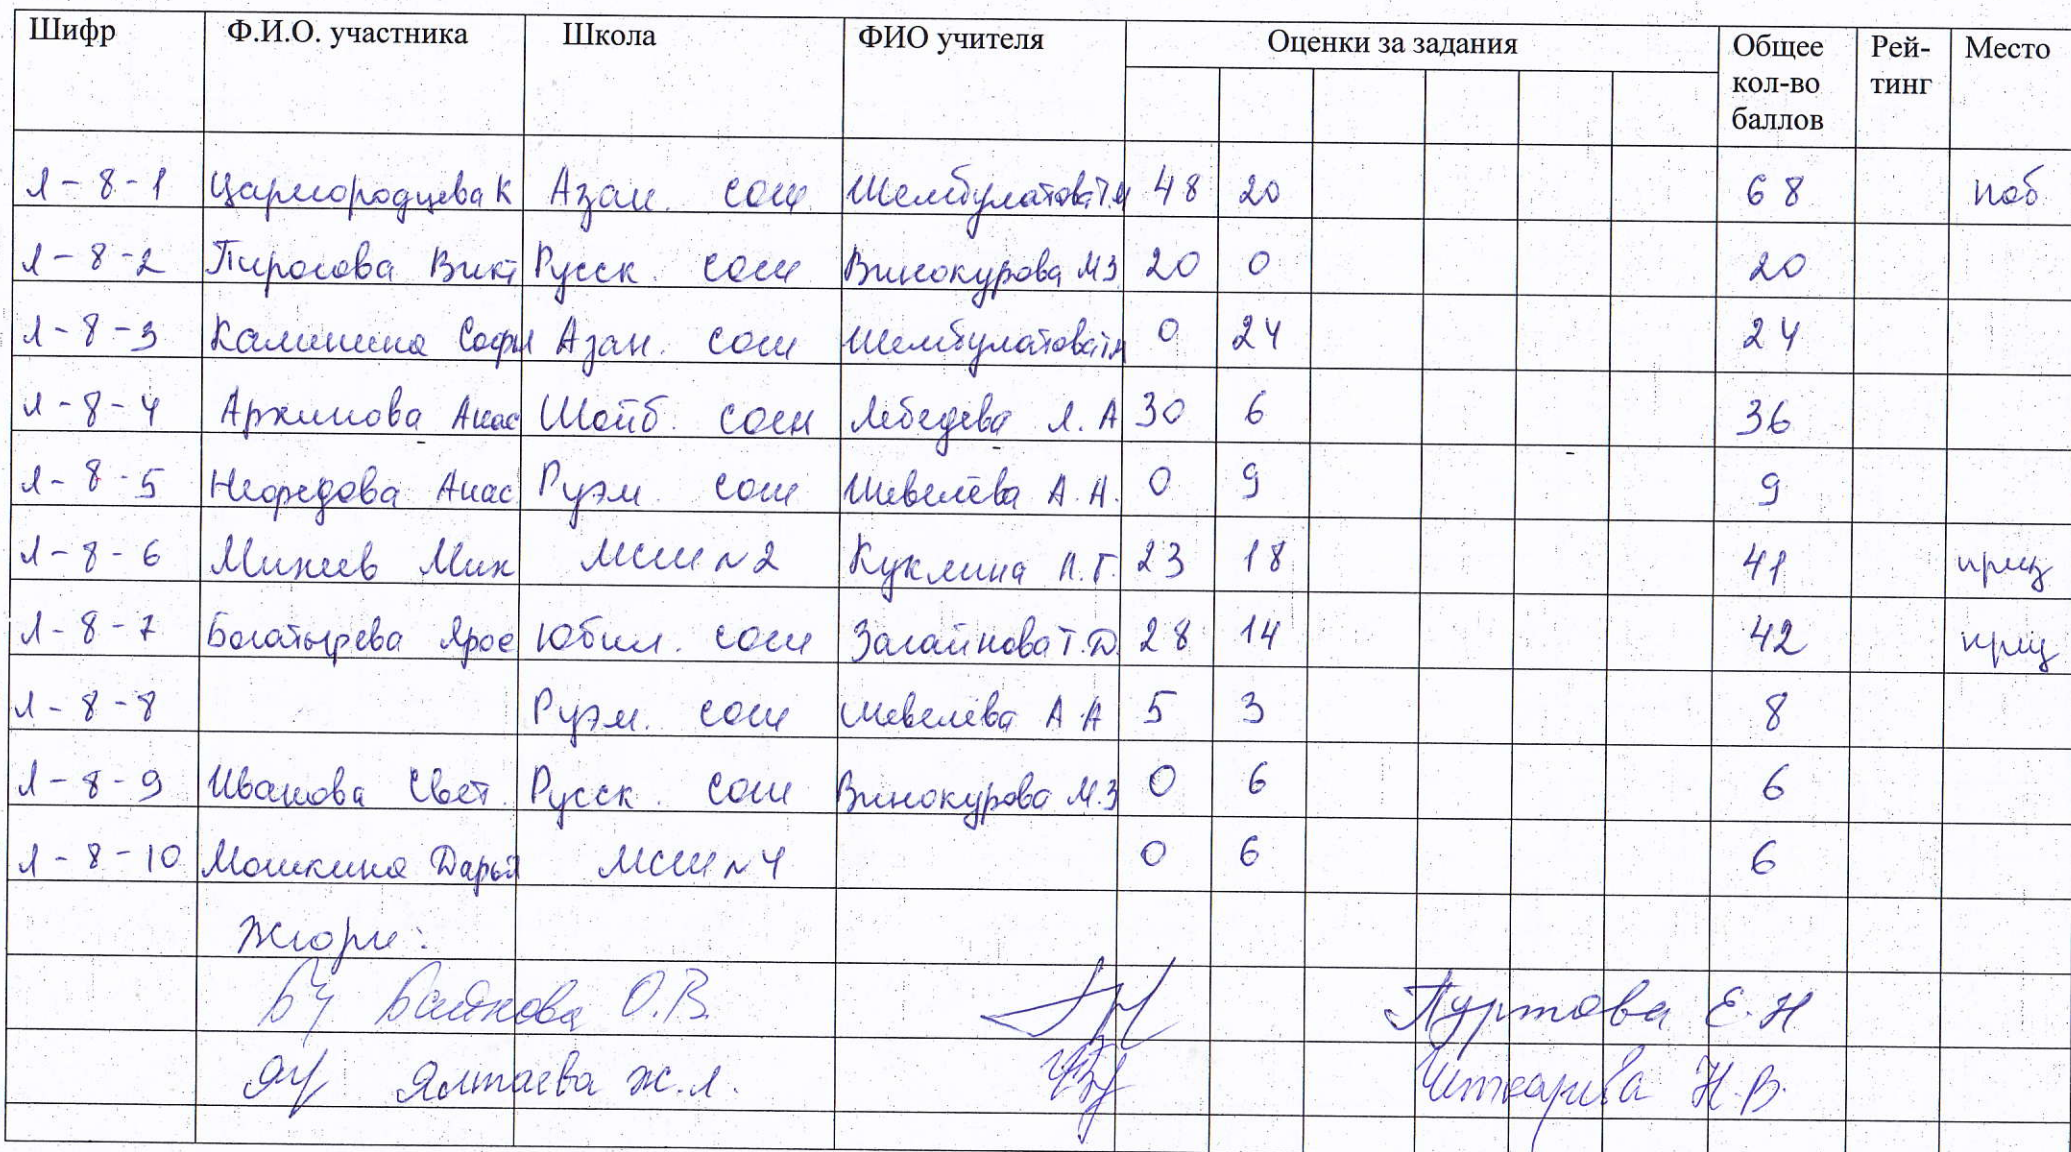 Шифр Ф.И.О. участника Школа ФИО учителя Оценки за задания Общее кол-во баллов Рей-тинг Место
Л-8-1 Царегородцева К Азан. сош Шембулатова Т.М 48 20 68 поб
Л-8-2 Пирогова Викт Русск. сош Винокурова М З 20 0 20
Л-8-3 Калинина Софья Азан. сош Шембулатова Т.М 0 24 24
Л-8-4 Архипова Анас Шойб. сош Лебедева Л. А 30 6 36
Л-8-5 Нефедова Анас Руэм. сош Шевелёва А. А. 0 9 9
Л-8-6 Михеев Мих МСШ N2 Куклина Л. Г. 23 18 41 приз
Л-8-7 Богатырева Ярос Юбил. сош Загайнова Т. Д. 28 14 42 приз
Л-8-8 Руэм. сош Шевелёва А А 5 3 8
Л-8-9 Иванова Свет. Русск. сош Винокурова М.З 0 6 6
Л-8-10 Мошкина Дарья МСШ N4 0 6 6
Жюри:
Байкова О.В. Пуртова Е.Н
Ялтаева Ж.Л. Н.В.